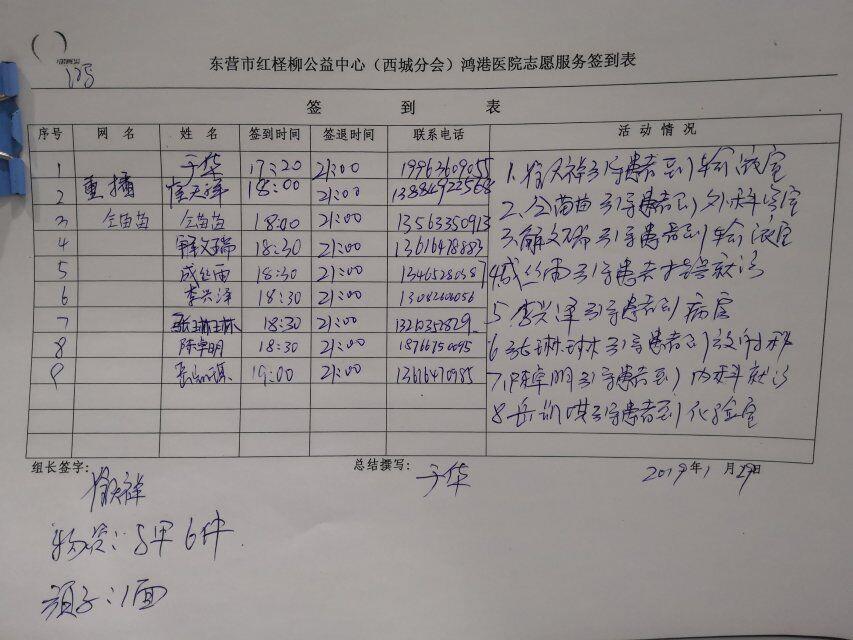 东营市红柽柳公益中心（西城分会）鸿港医院志愿服务签到表
签 到 表
序号 网 名 姓 名 签到时间 签退时间 联系电话 活 动 情 况
1 于华 17:20 21:00 19963609055
2 重播 天祥 18:00 21:00 13884922568
3 仝苗苗 仝苗苗 18:00 21:00 13563350913
4 解文瑞 18:30 21:00 13616418883
5 成丝雨 18:30 21:00 13465280587
6 李兴泽 18:30 21:00 13082606056
7 张琳琳 18:30 21:00 13210352829
8 陈卓明 18:30 21:00 18766750095
9 岳凯琪 19:00 21:00 13616470985
1. 天祥引导患者到输液室
2、仝苗苗引导患者到外科诊室
3.解文瑞引导患者到输液室
4.成丝雨引导患者就诊
5.李兴泽引导患者到病房
6.张琳琳引导患者到放射科
7.陈卓明引导患者到内科就诊
8.岳凯琪引导患者到化验室
组长签字: 天祥 总结撰写: 于华 2019年1月29日
物资:马甲6件.
旗子:1面